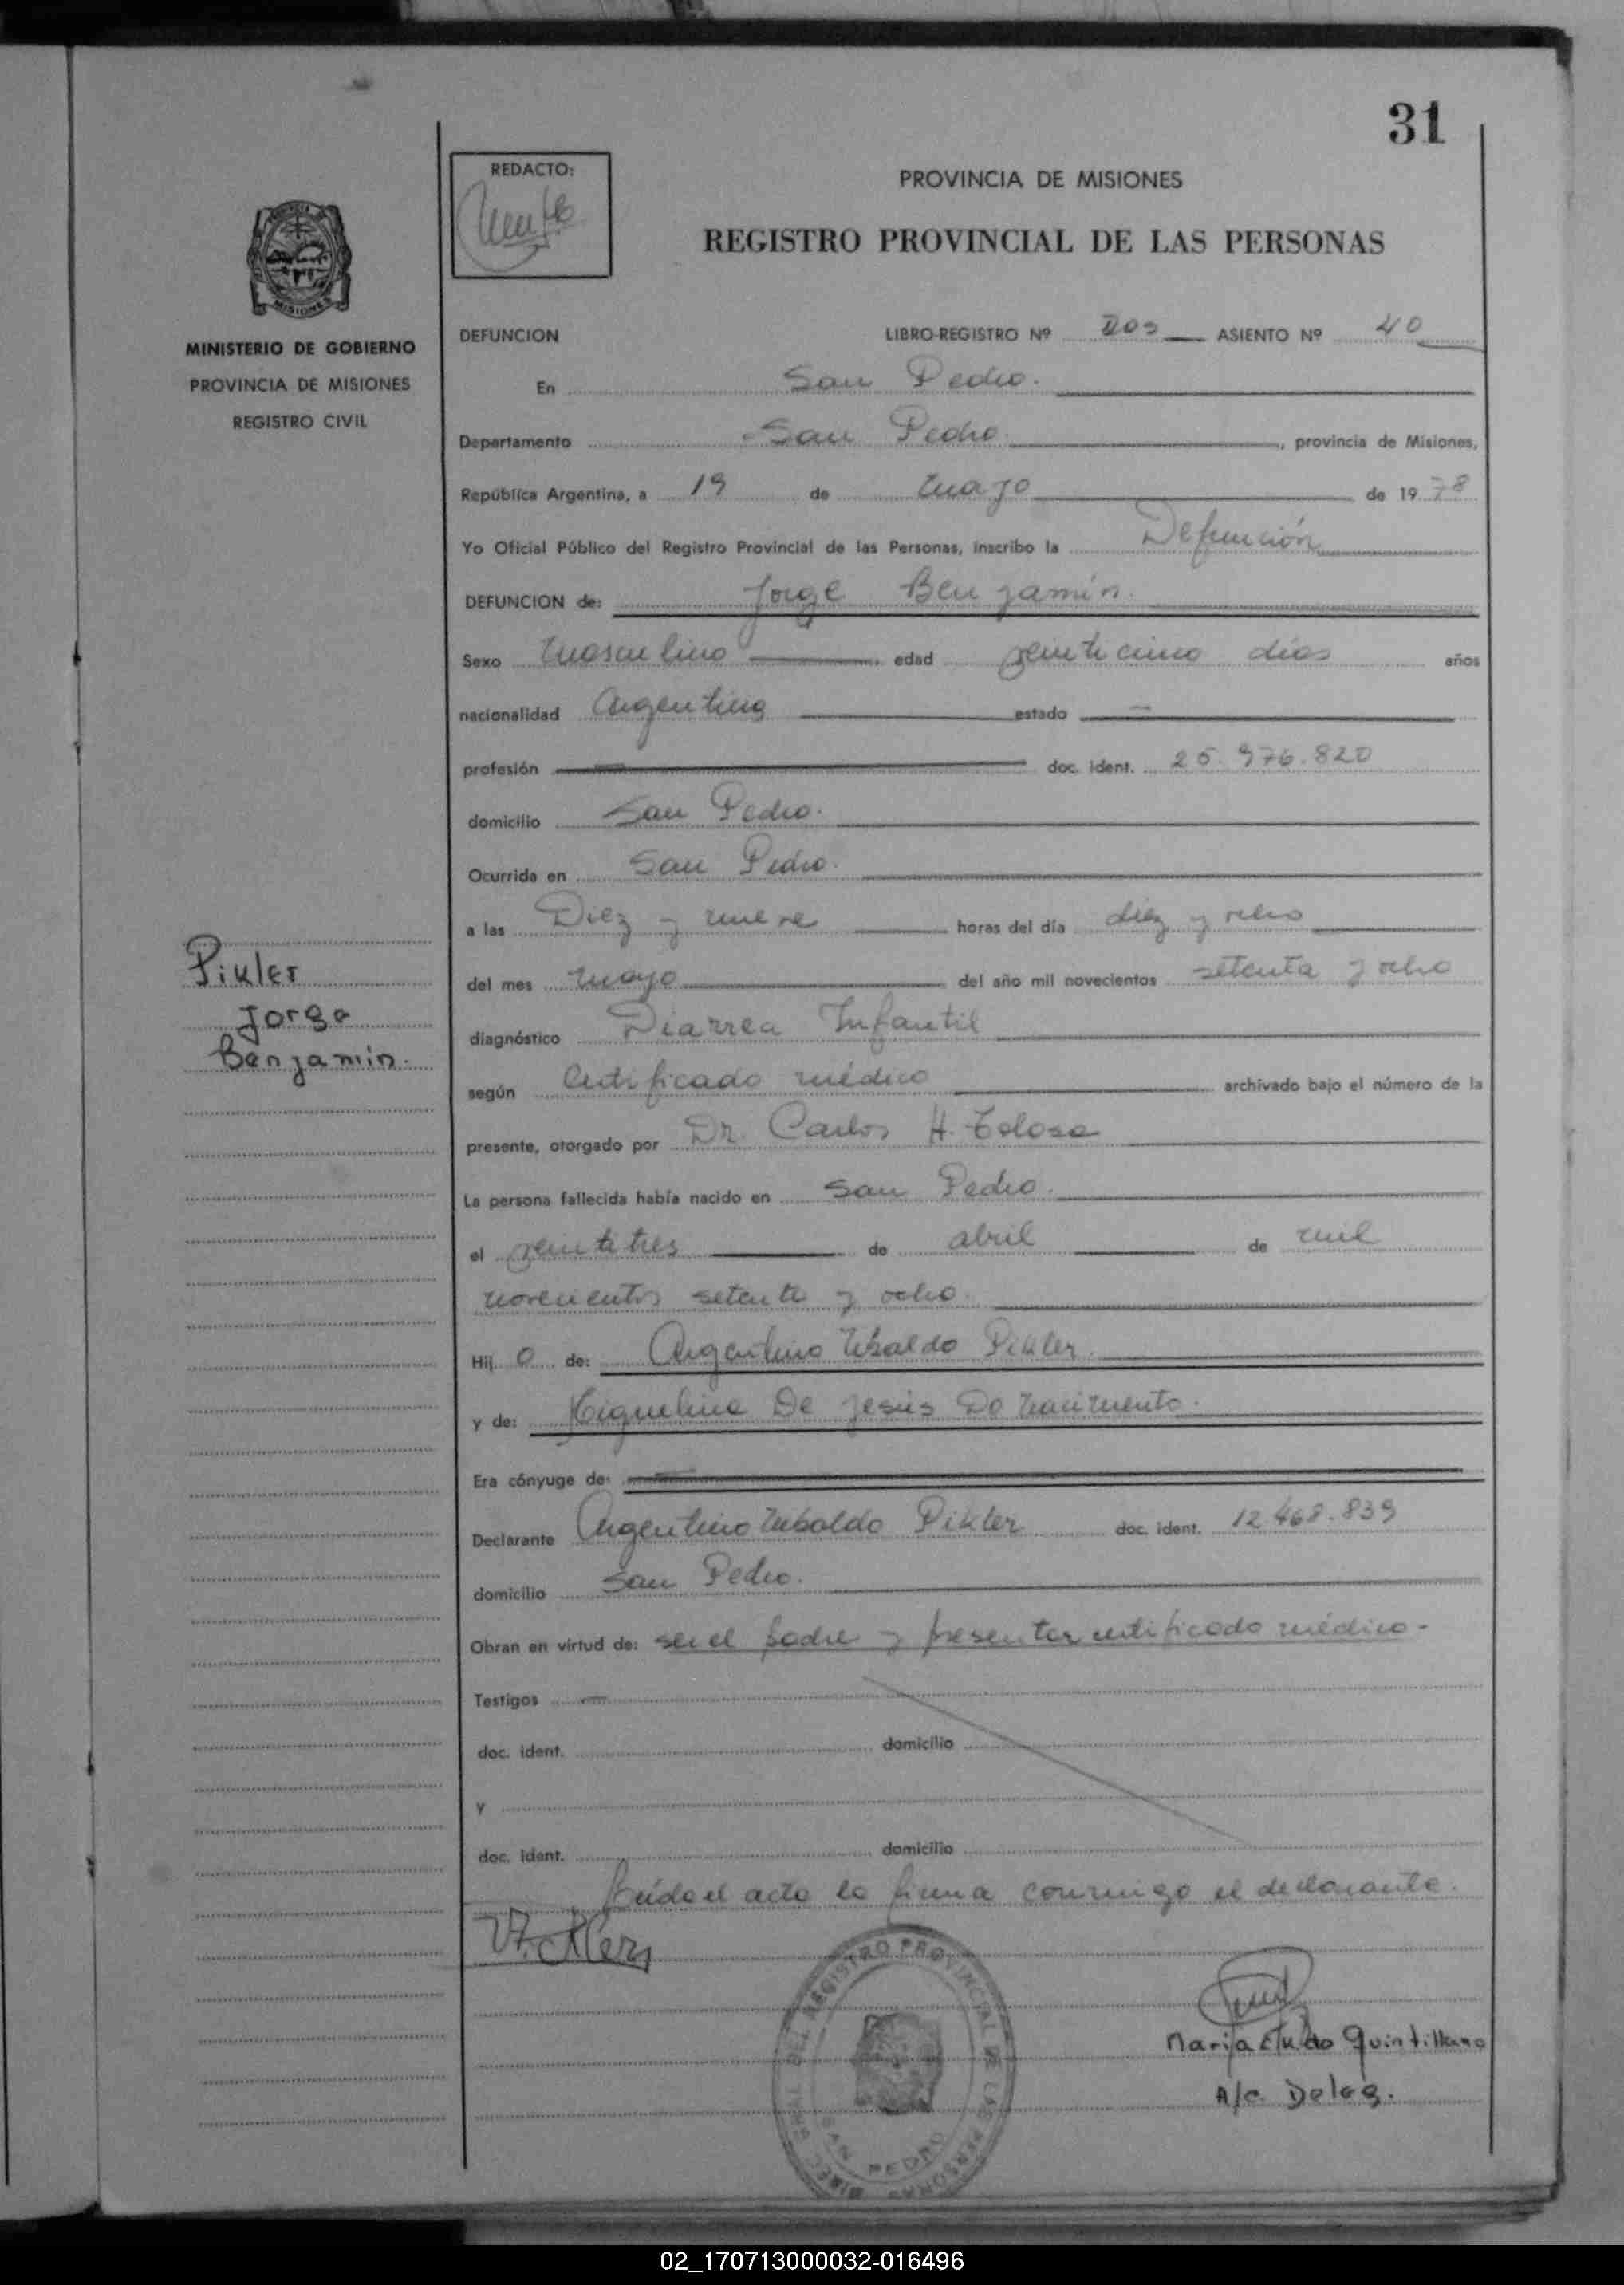 31
REDACTO:
PROVINCIA DE MISIONES
REGISTRO PROVINCIAL DE LAS PERSONAS
MISIONES
MINISTERIO DE GOBIERNO
PROVINCIA DE MISIONES
REGISTRO CIVIL
Pikler
Jorge
Benjamin.
DEFUNCION LIBRO-REGISTRO Nº Dos ASIENTO Nº 40
En San Pedro.
Departamento San Pedro , provincia de Misiones,
República Argentina, a 19 de mayo de 1978
Yo Oficial Público del Registro Provincial de las Personas, inscribo la Defunción
DEFUNCION de: Jorge Benjamín.
Sexo Masculino edad veinticinco días años
nacionalidad Argentina estado —
profesión — doc. ident. 25.976.820
domicilio San Pedro.
Ocurrida en San Pedro.
a las Diez y nueve horas del día diez y ocho
del mes mayo del año mil novecientos setenta y ocho
diagnóstico Diarrea Infantil
según Certificado médico archivado bajo el número de la
presente, otorgado por Dr. Carlos H. Tolosa
La persona fallecida había nacido en San Pedro.
el veintitres de abril de mil
novecientos setenta y ocho.
Hij o de: Argentino Ubaldo Pikler.
y de: Miguelina De Jesús Do Nacimento.
Era cónyuge de: —
Declarante Argentino Ubaldo Pikler doc. ident. 12.468.839
domicilio San Pedro.
Obran en virtud de: ser el padre y presentar certificado médico-
Testigos —
doc. ident. domicilio
y
doc. ident. domicilio
Leído el acto lo firma conmigo el declarante.
DEL REGISTRO PROVINCIAL DE LAS PERSONAS
SAN PEDRO
Maria Quintillano
A/c. Deleg.
02_170713000032-016496